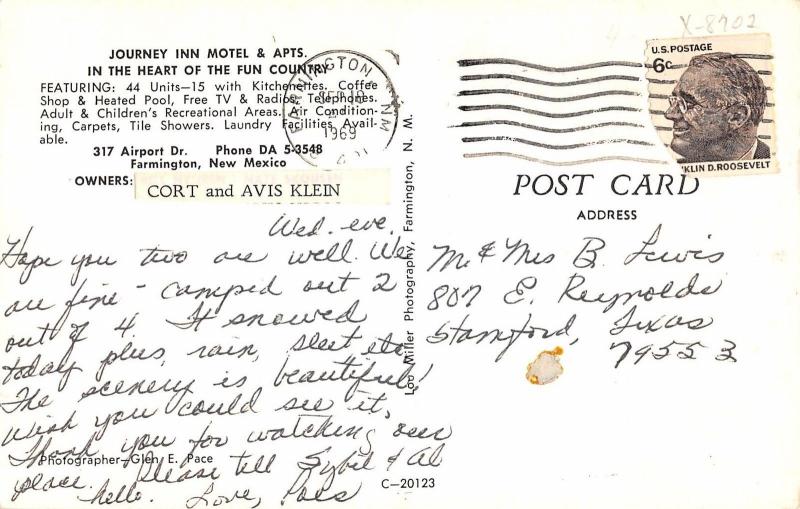 X-8702
JOURNEY INN MOTEL & APTS.
IN THE HEART OF THE FUN COUNTRY
FEATURING: 44 Units—15 with Kitchenettes. Coffee
Shop & Heated Pool, Free TV & Radios, Telephones.
Adult & Children's Recreational Areas. Air Condition-
ing, Carpets, Tile Showers. Laundry Facilities Avail-
able.
317 Airport Dr. Phone DA 5-3548
Farmington, New Mexico
OWNERS:
CORT and AVIS KLEIN
FARMINGTON NM
1969
U.S. POSTAGE
6c
KLIN D. ROOSEVELT
POST CARD
ADDRESS
Wed. eve.
Hope you two are well. We
are fine - camped out 2
out of 4. It snowed
today plus, rain, sleet, etc.
The scenery is beautiful!
Wish you could see it,
Thank you for watching our
place. Please tell Sybil & Al
hello. Love,
Mr & Mrs B. Lewis
807 E. Reynolds
Stamford, Texas
79553
Lou Miller Photography, Farmington, N. M.
Photographer—Glen E. Pace
C-20123